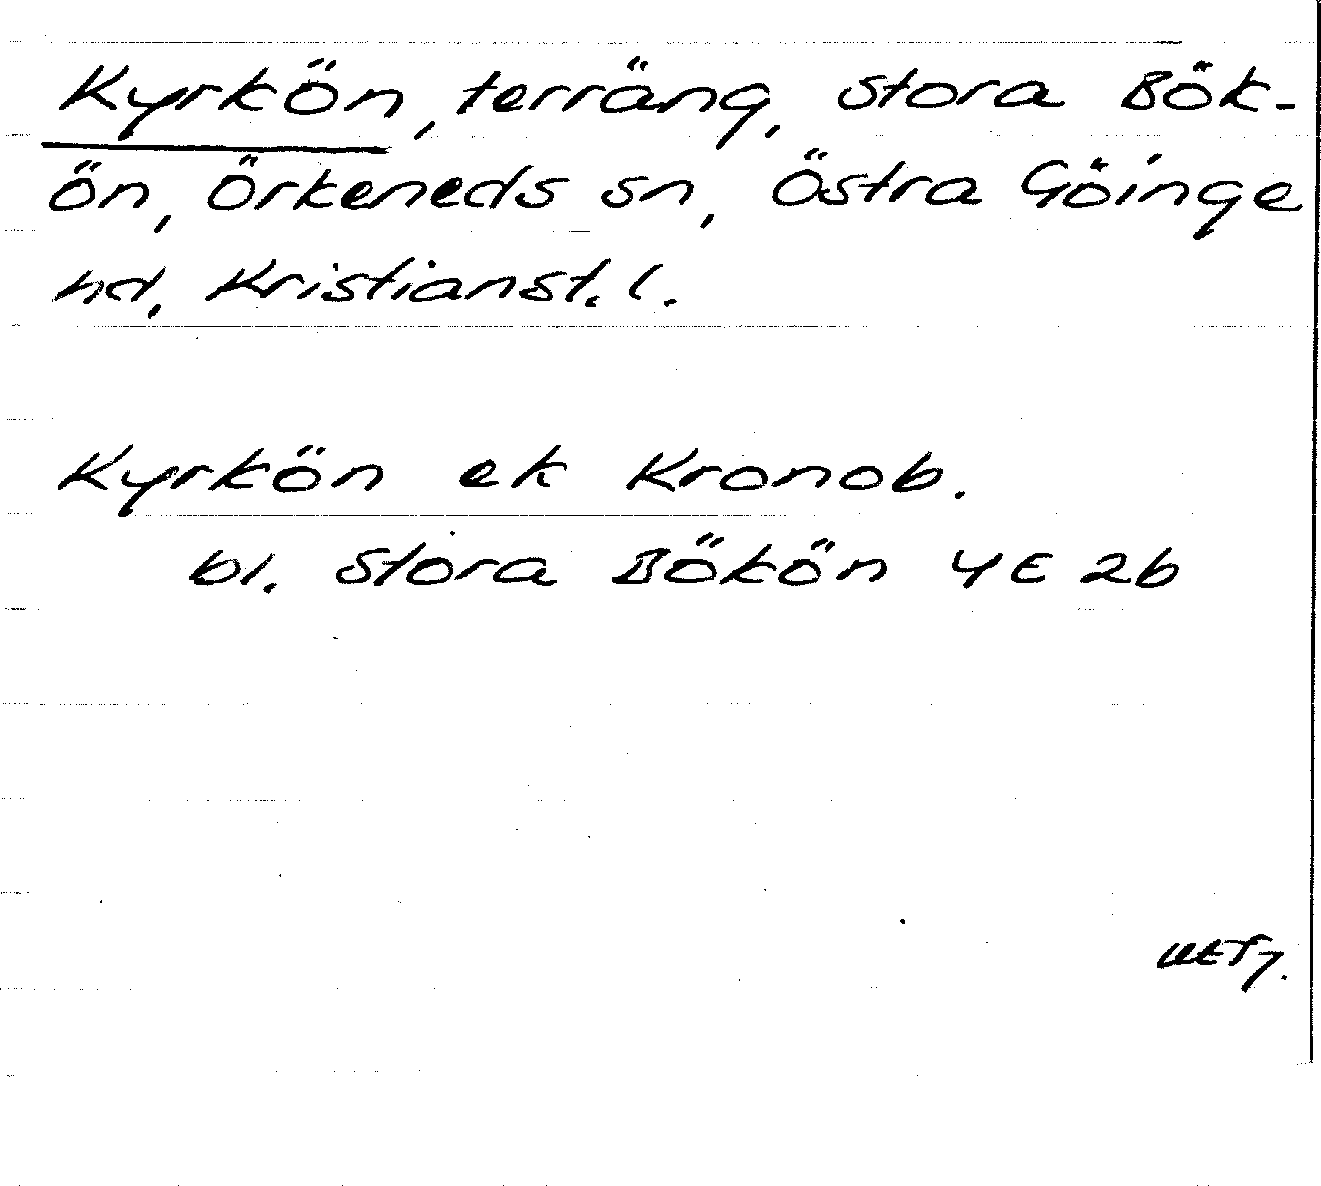 Kyrkön, terräng, Stora Bök-
ön, Örkeneds sn, Östra Göinge
hd, Kristianst. l.
Kyrkön ek Kronob.
bl. Stora Bökön 4E 2b